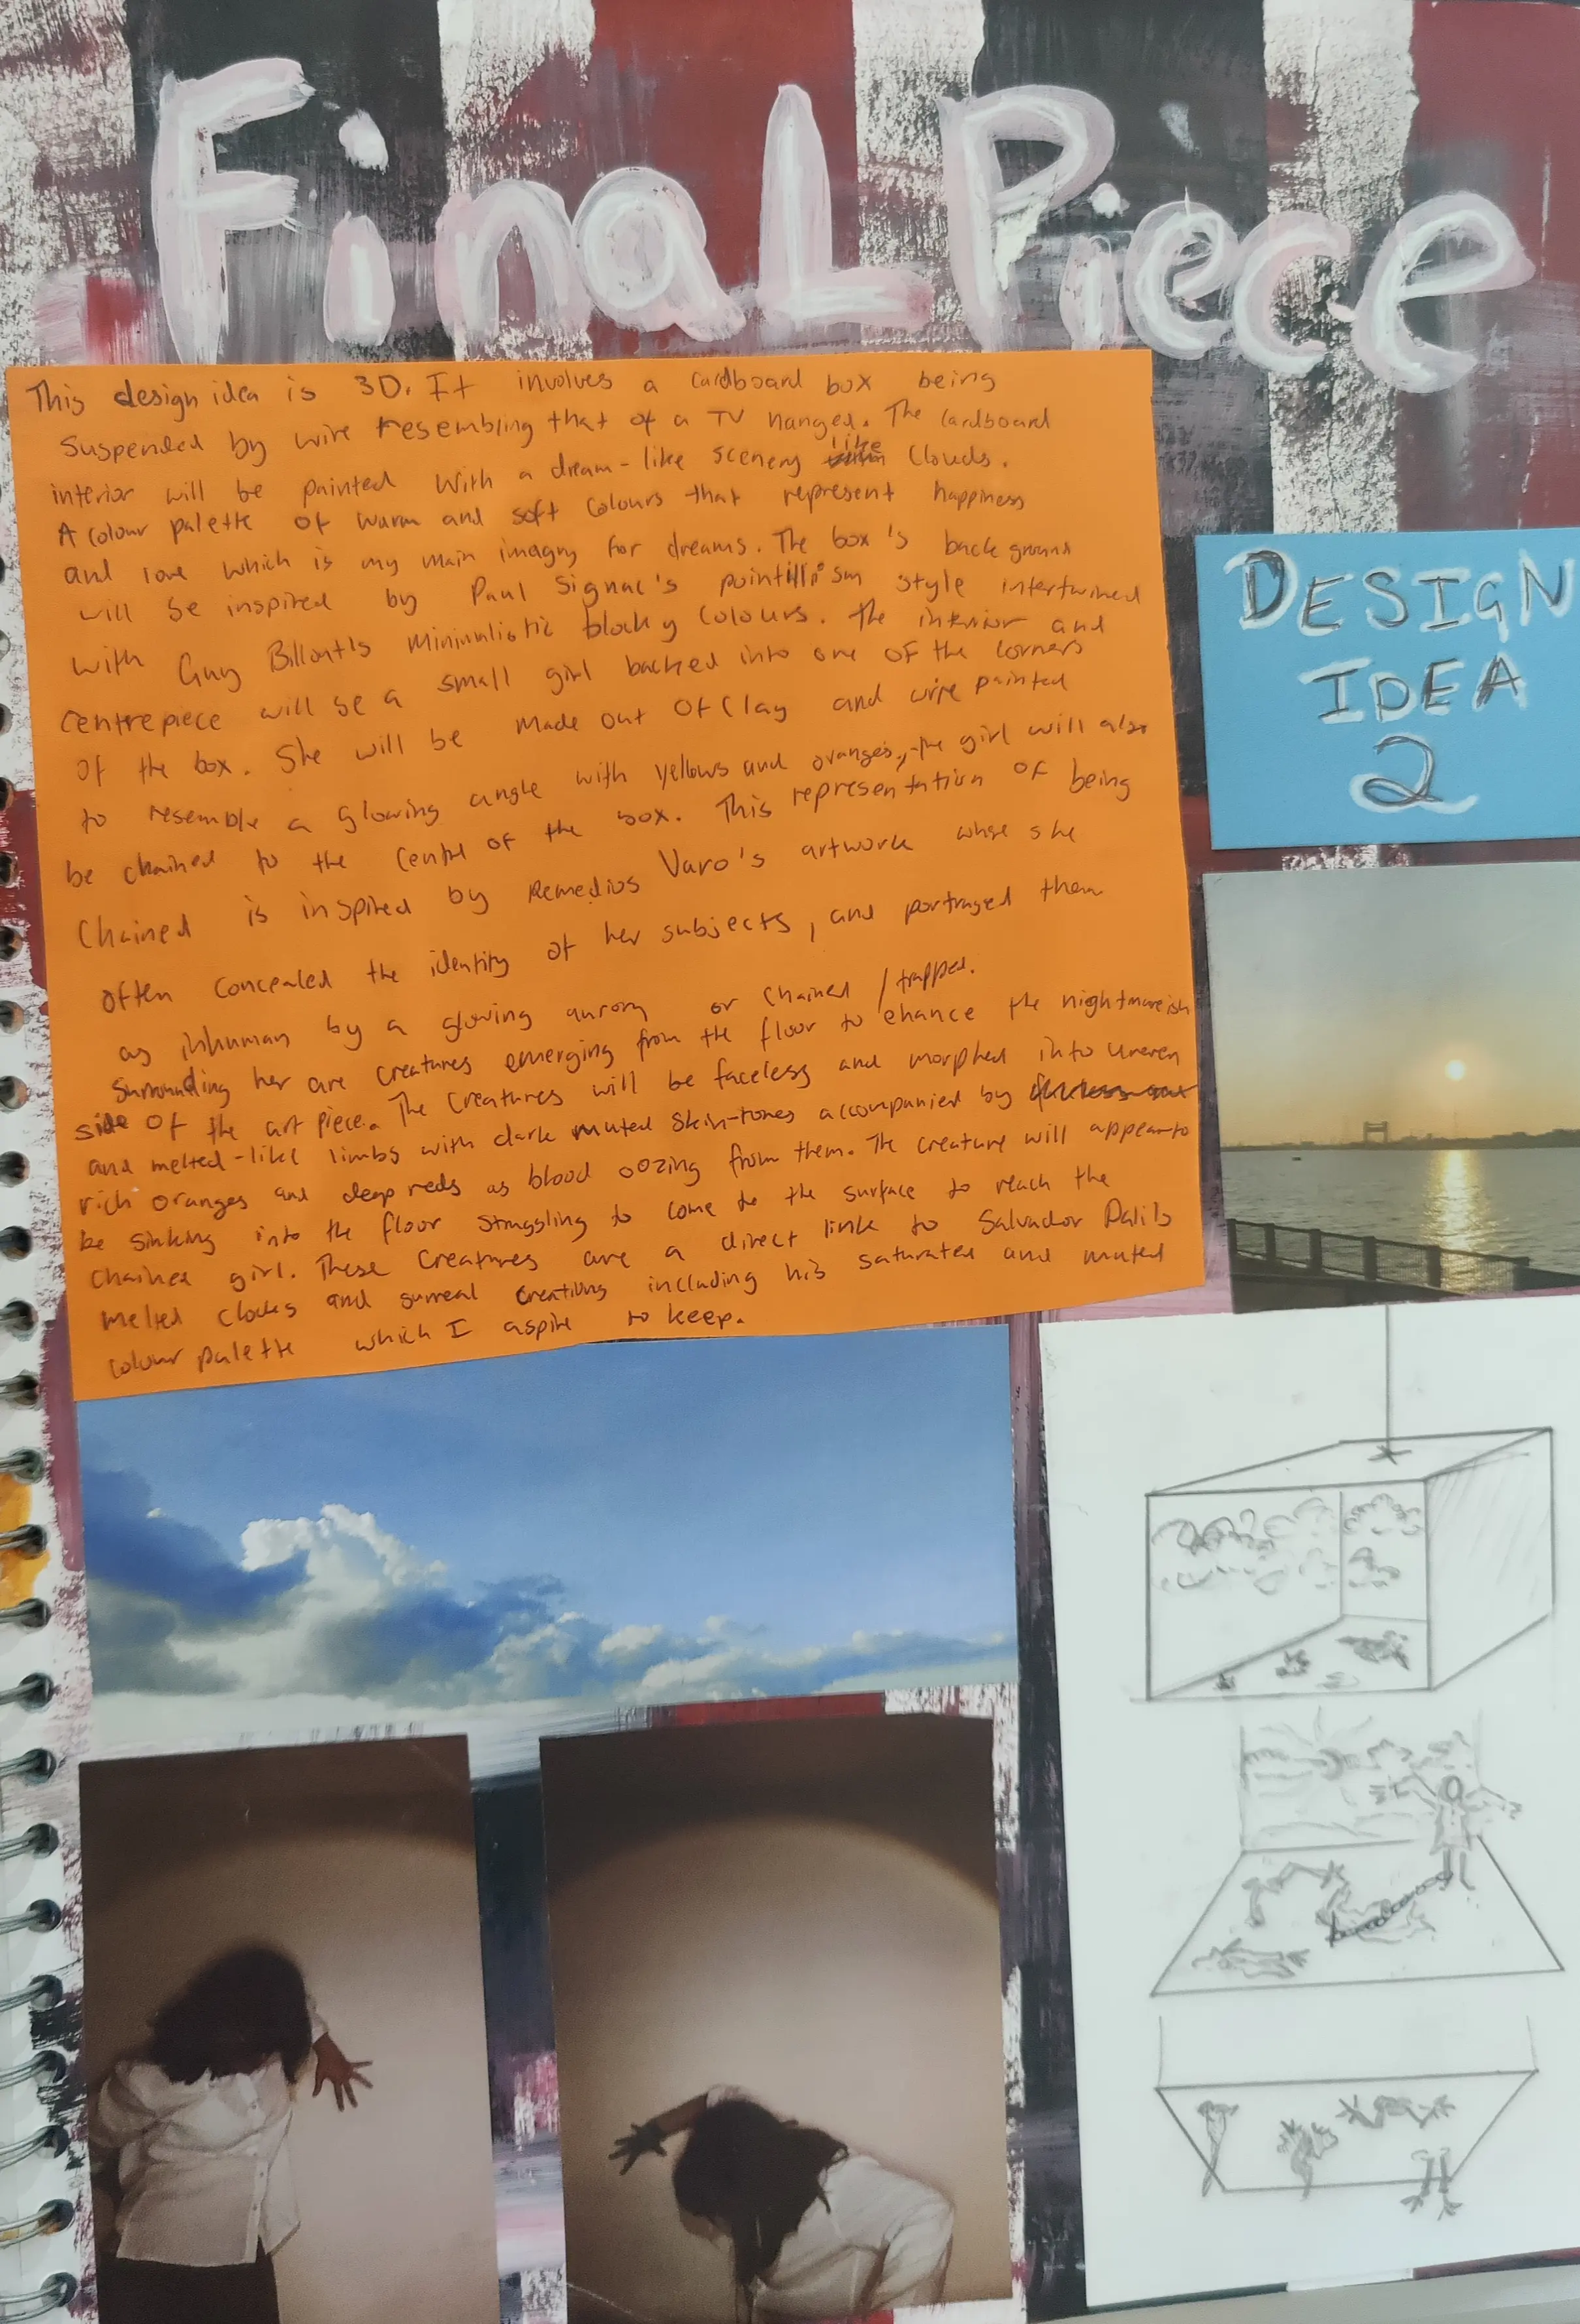 Final Piece
This design idea is 3D. It involves a cardboard box being
suspended by wire resembling that of a TV hanged. The cardboard
interior will be painted with a dream-like scenery like clouds.
A colour palette of warm and soft colours that represent happiness
and love which is my main imagry for dreams. The box's background
will be inspired by Paul Signac's pointillism style intertwined
with Guy Billout's minimalistic blocky colours. The interior and
centrepiece will be a small girl backed into one of the corners
of the box. She will be made out of clay and wire painted
to resemble a glowing angle with yellows and oranges, the girl will also
be chained to the centre of the box. This representation of being
chained is inspired by Remedios Varo's artwork whose she
often concealed the identity of her subjects, and portrayed them
as inhuman by a glowing aurory or chained / trapped.
Surrounding her are creatures emerging from the floor to ehance the nightmareish
side of the art piece. The creatures will be faceless and morphed into uneven
and melted-like limbs with dark muted skin-tones accompanied by
rich oranges and deep reds as blood oozing from them. The creature will appear to
be sinking into the floor struggling to come to the surface to reach the
chained girl. These creatures are a direct link to Salvador Dali's
melted clocks and surreal creations including his saturated and muted
colour palette which I aspire to keep.
DESIGN
IDEA
2